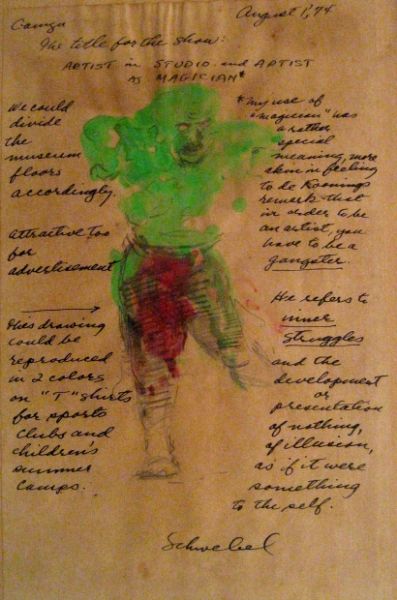 August 1, '94
The title for the show:
ARTIST in STUDIO and ARTIST
as MAGICIAN*
We could
divide
the
museum
floors
accordingly.
Attractive too
for
advertisement
This drawing
could be
reproduced
in 2 colors
on "T" shirts
for sports
clubs and
children's
summer
camps.
*my use of
"magician" has
a rather
special
meaning, more
akin in feeling
to de Koonings
remark that
in order to be
an artist, you
have to be a
gangster
He refers to
inner
struggles
and the
development
or
presentation
of nothing,
of illusion,
as if it were
something
to the self.
Schwebel